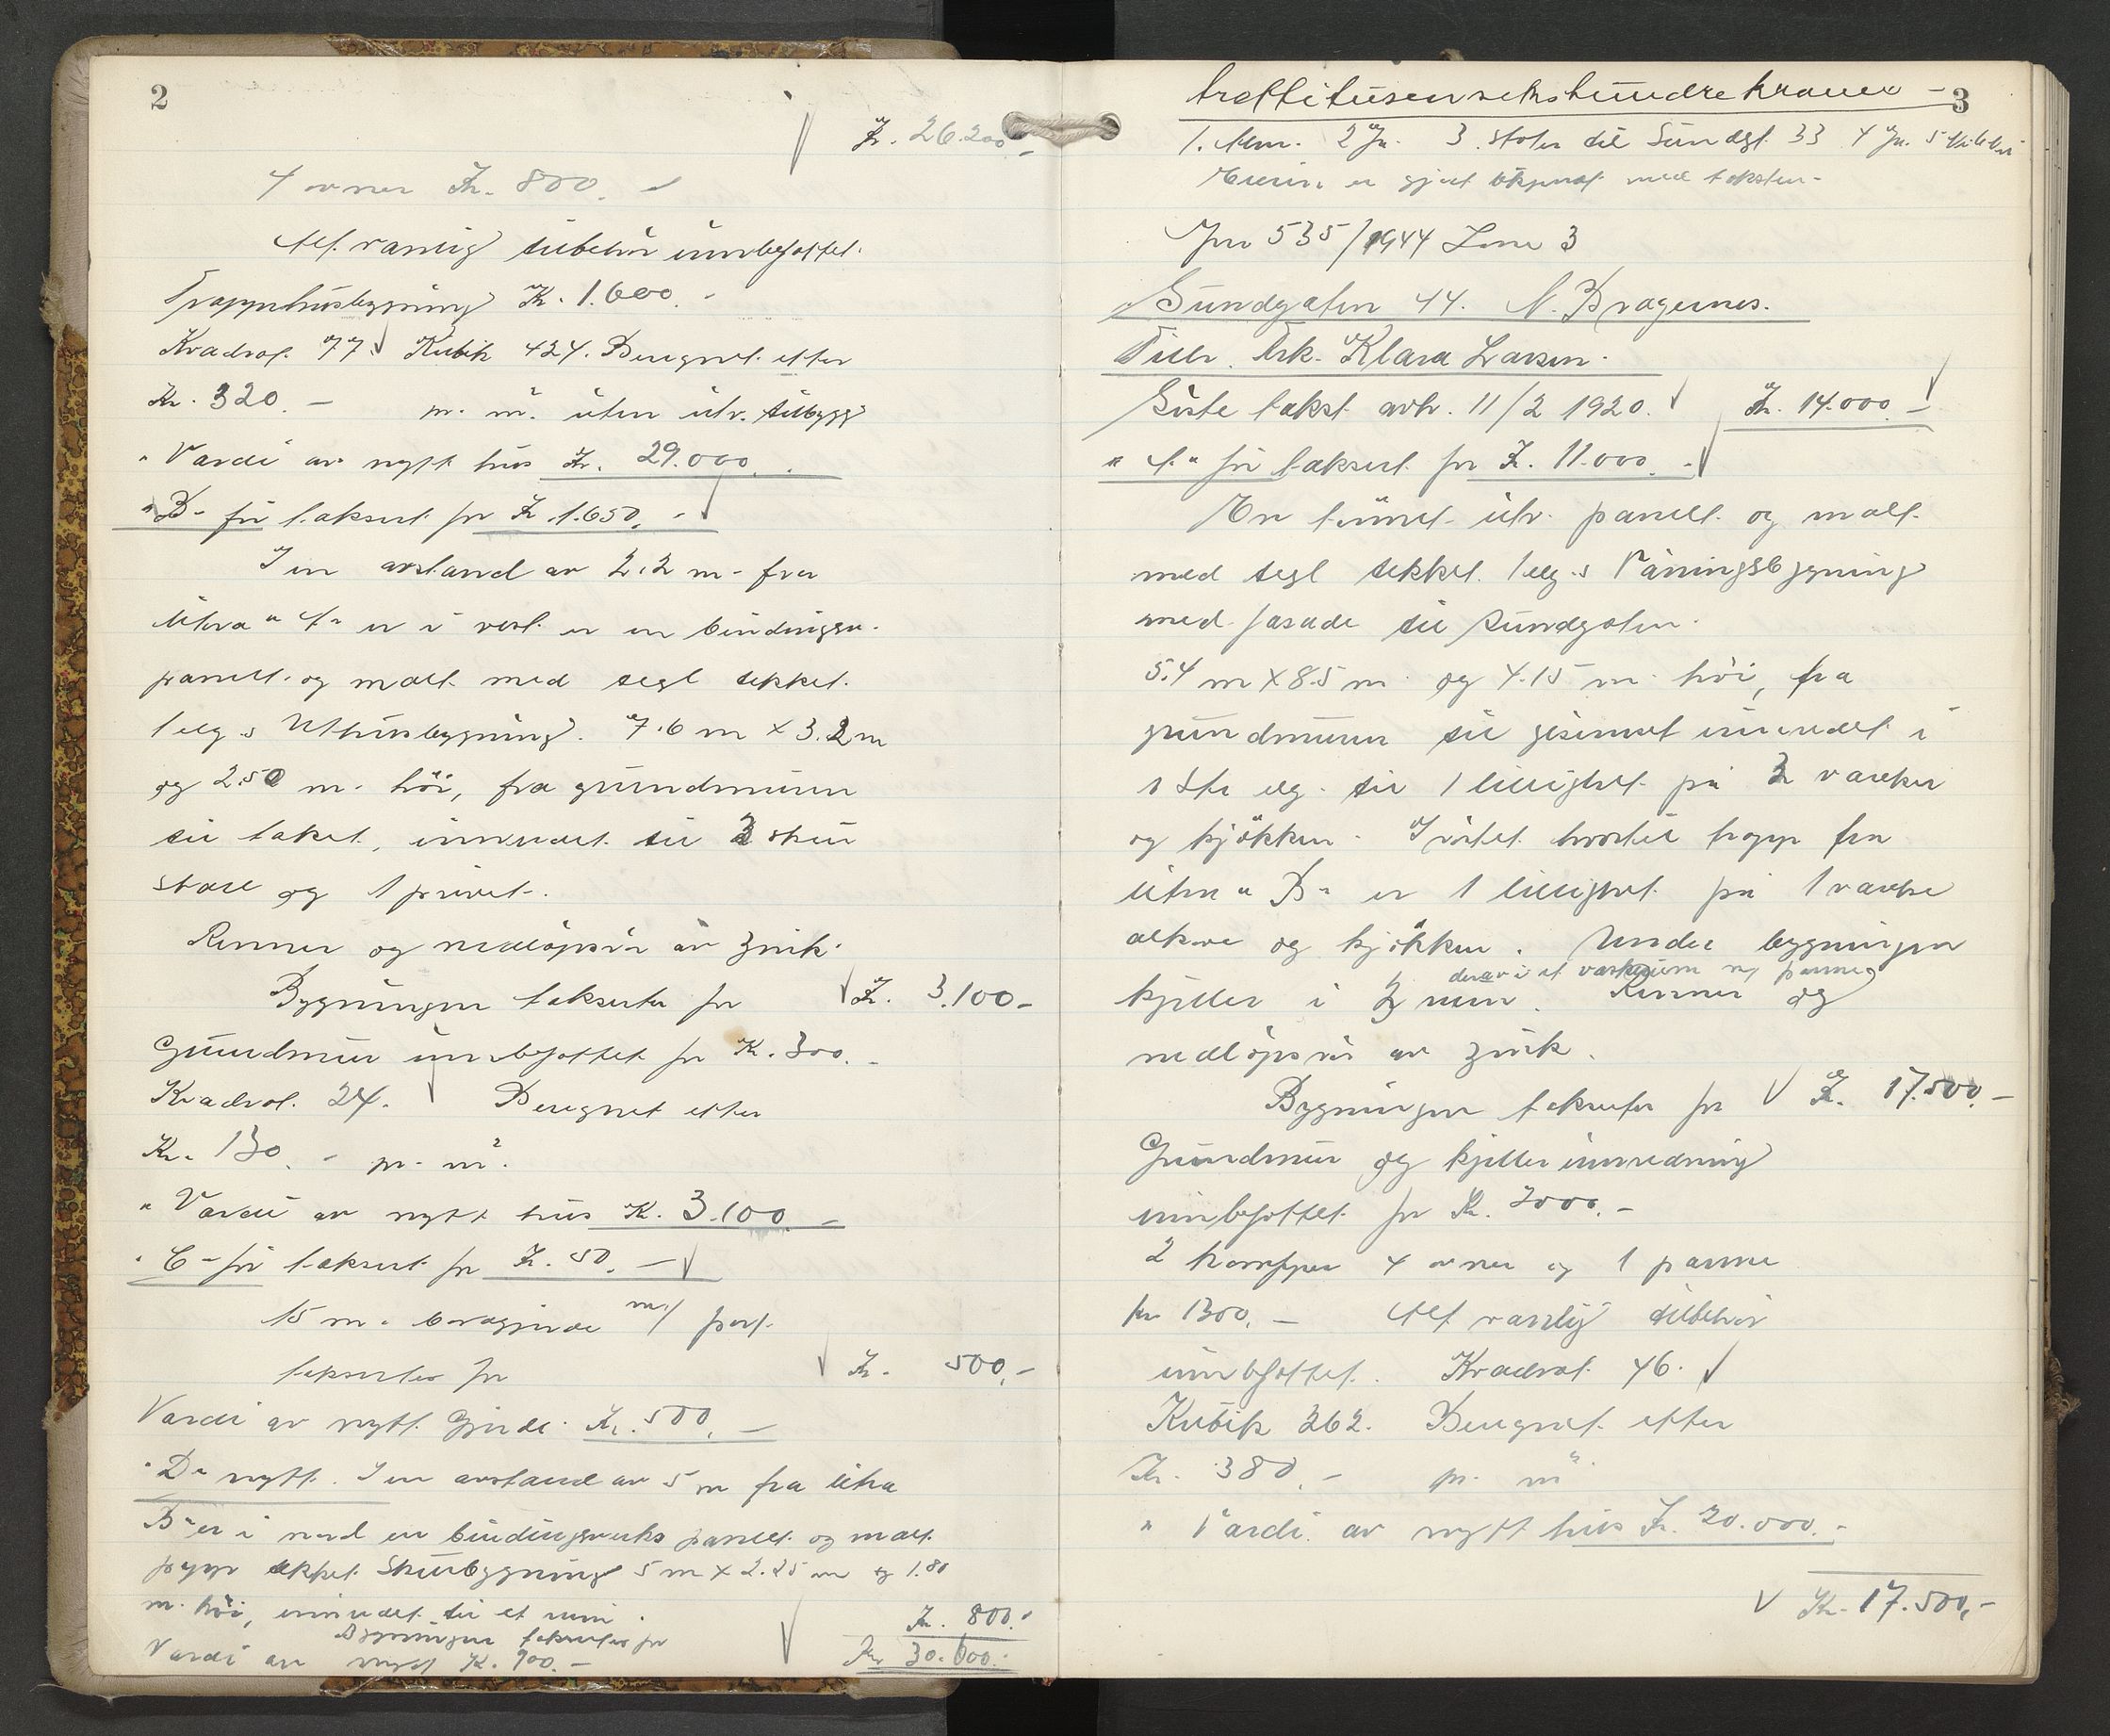 2
Kr. 26.200.-
4 ovner Kr. 800.-
Alt vanlig tilbehör innbefattet.
Trappehusbygning Kr. 1.600.-
Kvadrat 77. Kubik 424. Beregnet etter
Kr. 320.- pr. m². uten utv. tilbygg
" Verdi av nytt hus Kr. 29.000.-
"B" för taksert for Kr. 1.650.-
I en avstand av 2,2 m. fra
litra "A" er i vest er en bindingsv.
panelt. og malt med tegl tekket.
1 etg.s Uthusbygning. 7.6 m x 3.2 m
og 2.50 m. höi, fra grundmuren
til taket, innredet til 2 skur
stall og 1 privet.
Renner og nedlöpsrör av zink.
Bygningen takseres for Kr. 3.100-
Grundmur innbefattet for Kr. 300.-
Kvadrat. 24. Beregnet etter
Kr. 130.- pr. m².
" Verdi av nytt hus Kr. 3.100.-
"C" för taksert for Kr. 50.-
15 m. bordgjerde m/ port
takseres for Kr. 500.-
Verdi av nytt Gjerde. Kr. 500.-
"D" nytt. I en avstand av 5 m fra litra
B" er i nord en bindingsverks panelt og malt
papp tekket Skurbygning 5 m x 2.25 m og 1.80
m. höi, innredet til et rum.
Bygningen takseres for Kr. 800.-
Verdi av nytt Kr. 900.- Kr. 30.600.-
3
trettitusensekshundre kroner -
stolen til Sundgt. 33
Eieren er gjort bekjent med taksten.
Jnr 535/1944 Sone 3
Sundgaten 44. N. Bragernes.
Tilh. Frk. Klara Larsen.
Siste takst avh. 11/2 1920. Kr. 14.000.-
"A" för taksert for Kr. 11.000.-
En tömret utv. panelt og malt
med tegl tekket 1 etg.s Våningsbygning
med fasade til Sundgaten.
5.4 m x 8.5 m og 4.15 m. höi, fra
grundmuren til gesimset innredet i
1ste etg. til 1 leilighet på 2 værelser
og kjökken. I loftet hvortil trapp fra
litra "B" er 1 leilighet på 1 værelse
alkove og kjökken. Under bygningen
derav i et vaskerum m/ panne
kjeller i 2 rum. Renner og
nedlöpsrör av zink.
Bygningen takseres for Kr. 17.500.-
Grundmur og kjeller innredning
innbefattet for Kr. 3000.-
2 komfyrer 4 ovner og 1 panne
kr 1300.- Alt vanlig tilbehör
innbefattet. Kvadrat 46.
Kubik 262. Beregnet etter
Kr. 380.- pr. m²
" Verdi av nytt hus Kr. 20.000.-
Kr. 17.500,-